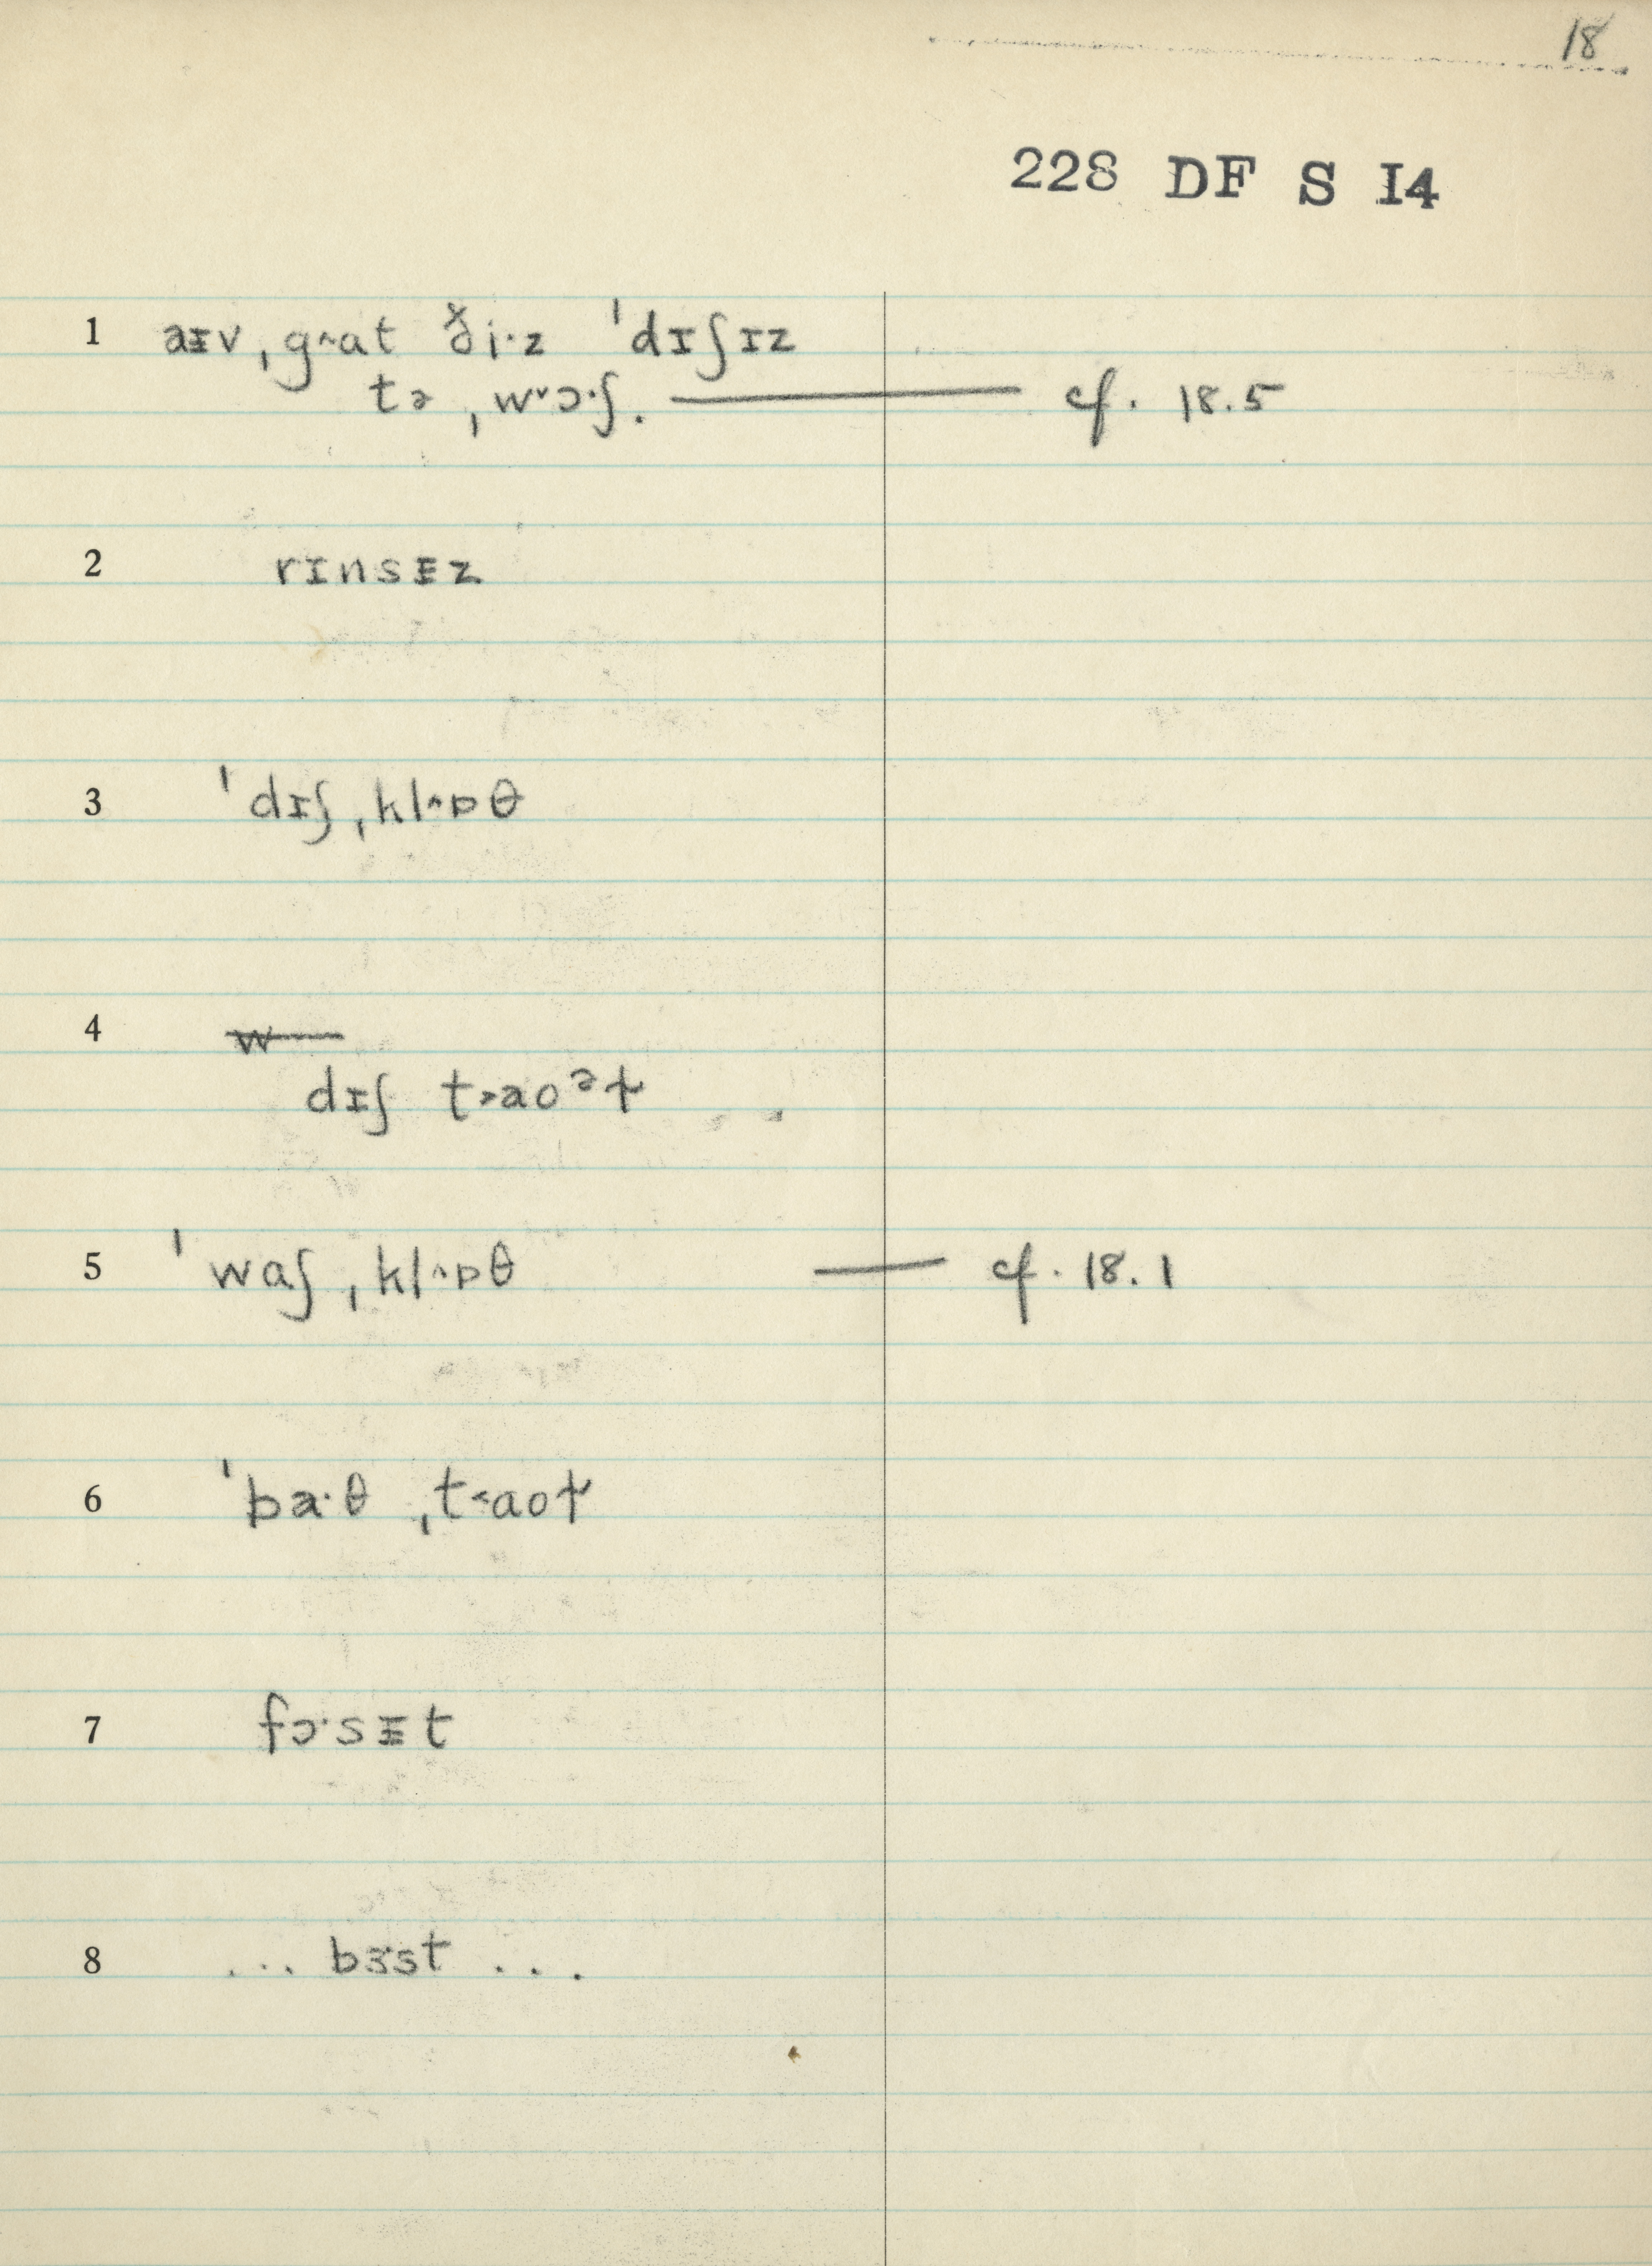 18
228 DF S I4
1 aɪv ˌg˄at ði·z ˈdɪʃɪz
tə ˌw˅ɔ·ʃ. —— cf. 18.5
2 rɪnsɪ̵z
3 ˈdɪʃ ˌkl˄ɒθ
4 w
dɪʃ t˃aoᵊɫ
5 ˈwaʃ ˌkl˄ɒθ — cf. 18.1
6 ˈbæ·θ ˌt˂aoɫ
7 fɔ·sɪ̵t
8 ... bɜst ...